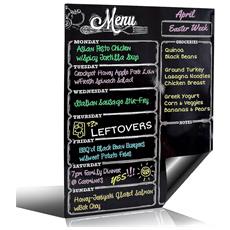 Menu
MONDAY
Asian Pesto Chicken
w/Spicy Tortilla Soup
TUESDAY
Crockpot Honey Apple Pork Loin
w/Fresh Spinach Salad
WEDNESDAY
Italian Sausage Stir-Fry
THURSDAY
LEFTOVERS
FRIDAY
BBQ'd Black Bean Burgers
w/Sweet Potato Fries!
SATURDAY
7pm Family Dinner
@ Casimiro's YES!!!
SUNDAY
Honey-Teriyaki Glazed Salmon
w/Bok Choy
April
Easter Week
GROCERIES
Quinoa
Black Beans
Ground Turkey
Lasagna Noodles
Chicken Breast
Greek Yogurt
Corn & Veggies
Bananas & Pears
NOTES